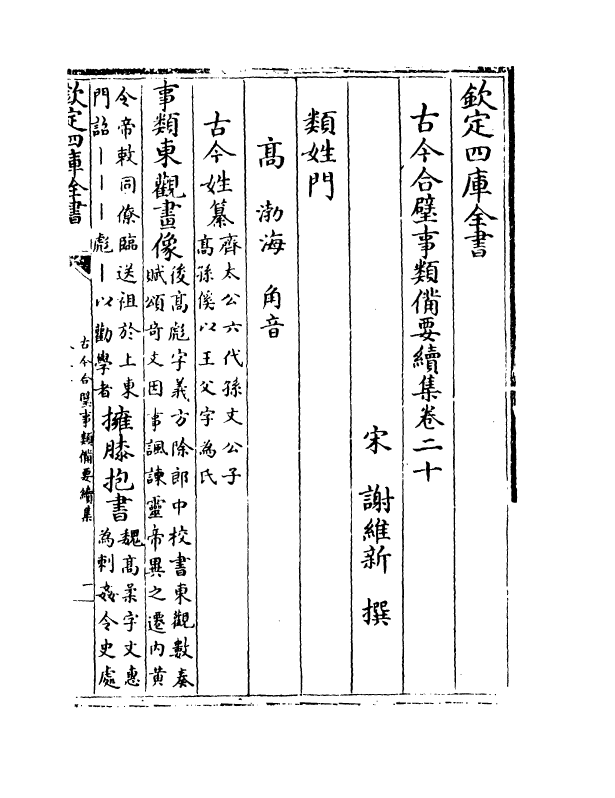 欽定四庫全書
古今合璧事類備要續集卷二十
宋 謝維新 撰
類姓門
高 渤海 角音
古今姓纂 齊太公六代孫文公子
高孫傒以王父字為氏
事類東觀畫像 後高彪字義方除郎中校書東觀數奏
賦頌奇文因事諷諫靈帝異之遷内黄
令帝敕同僚臨送祖於上東
門詔丨丨丨彪丨以勸學者
擁膝抱書 魏高柔字文惠
為刺姦令史處
欽定四庫全書
古今合璧事類備要續集